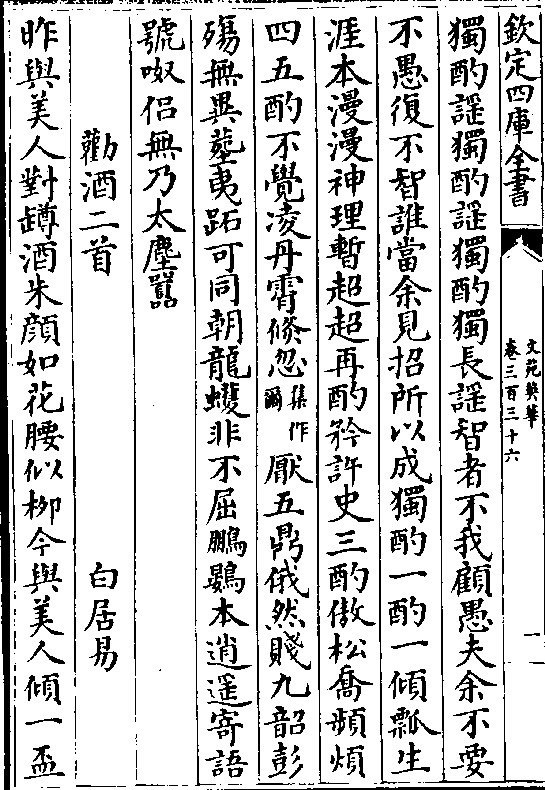 欽定四庫全書
文苑英華
卷三百三十六
一
獨酌謡獨酌謡獨酌獨長謡智者不我顧愚夫余不要
不愚復不智誰當余見招所以成獨酌一酌一傾瓢生
涯本漫漫神理暫超超再酌矜許史三酌傲松喬頻煩
四五酌不覺凌丹霄倐忽集作爾厭五鼎俄然賤九韶彭
殤無異葬夷跖可同朝龍蠖非不屈鵬鷃本逍遥寄語
號呶侣無乃太塵嚻
勸酒二首 白居易
昨與美人對罇酒朱顔如花腰似柳今與美人傾一盃